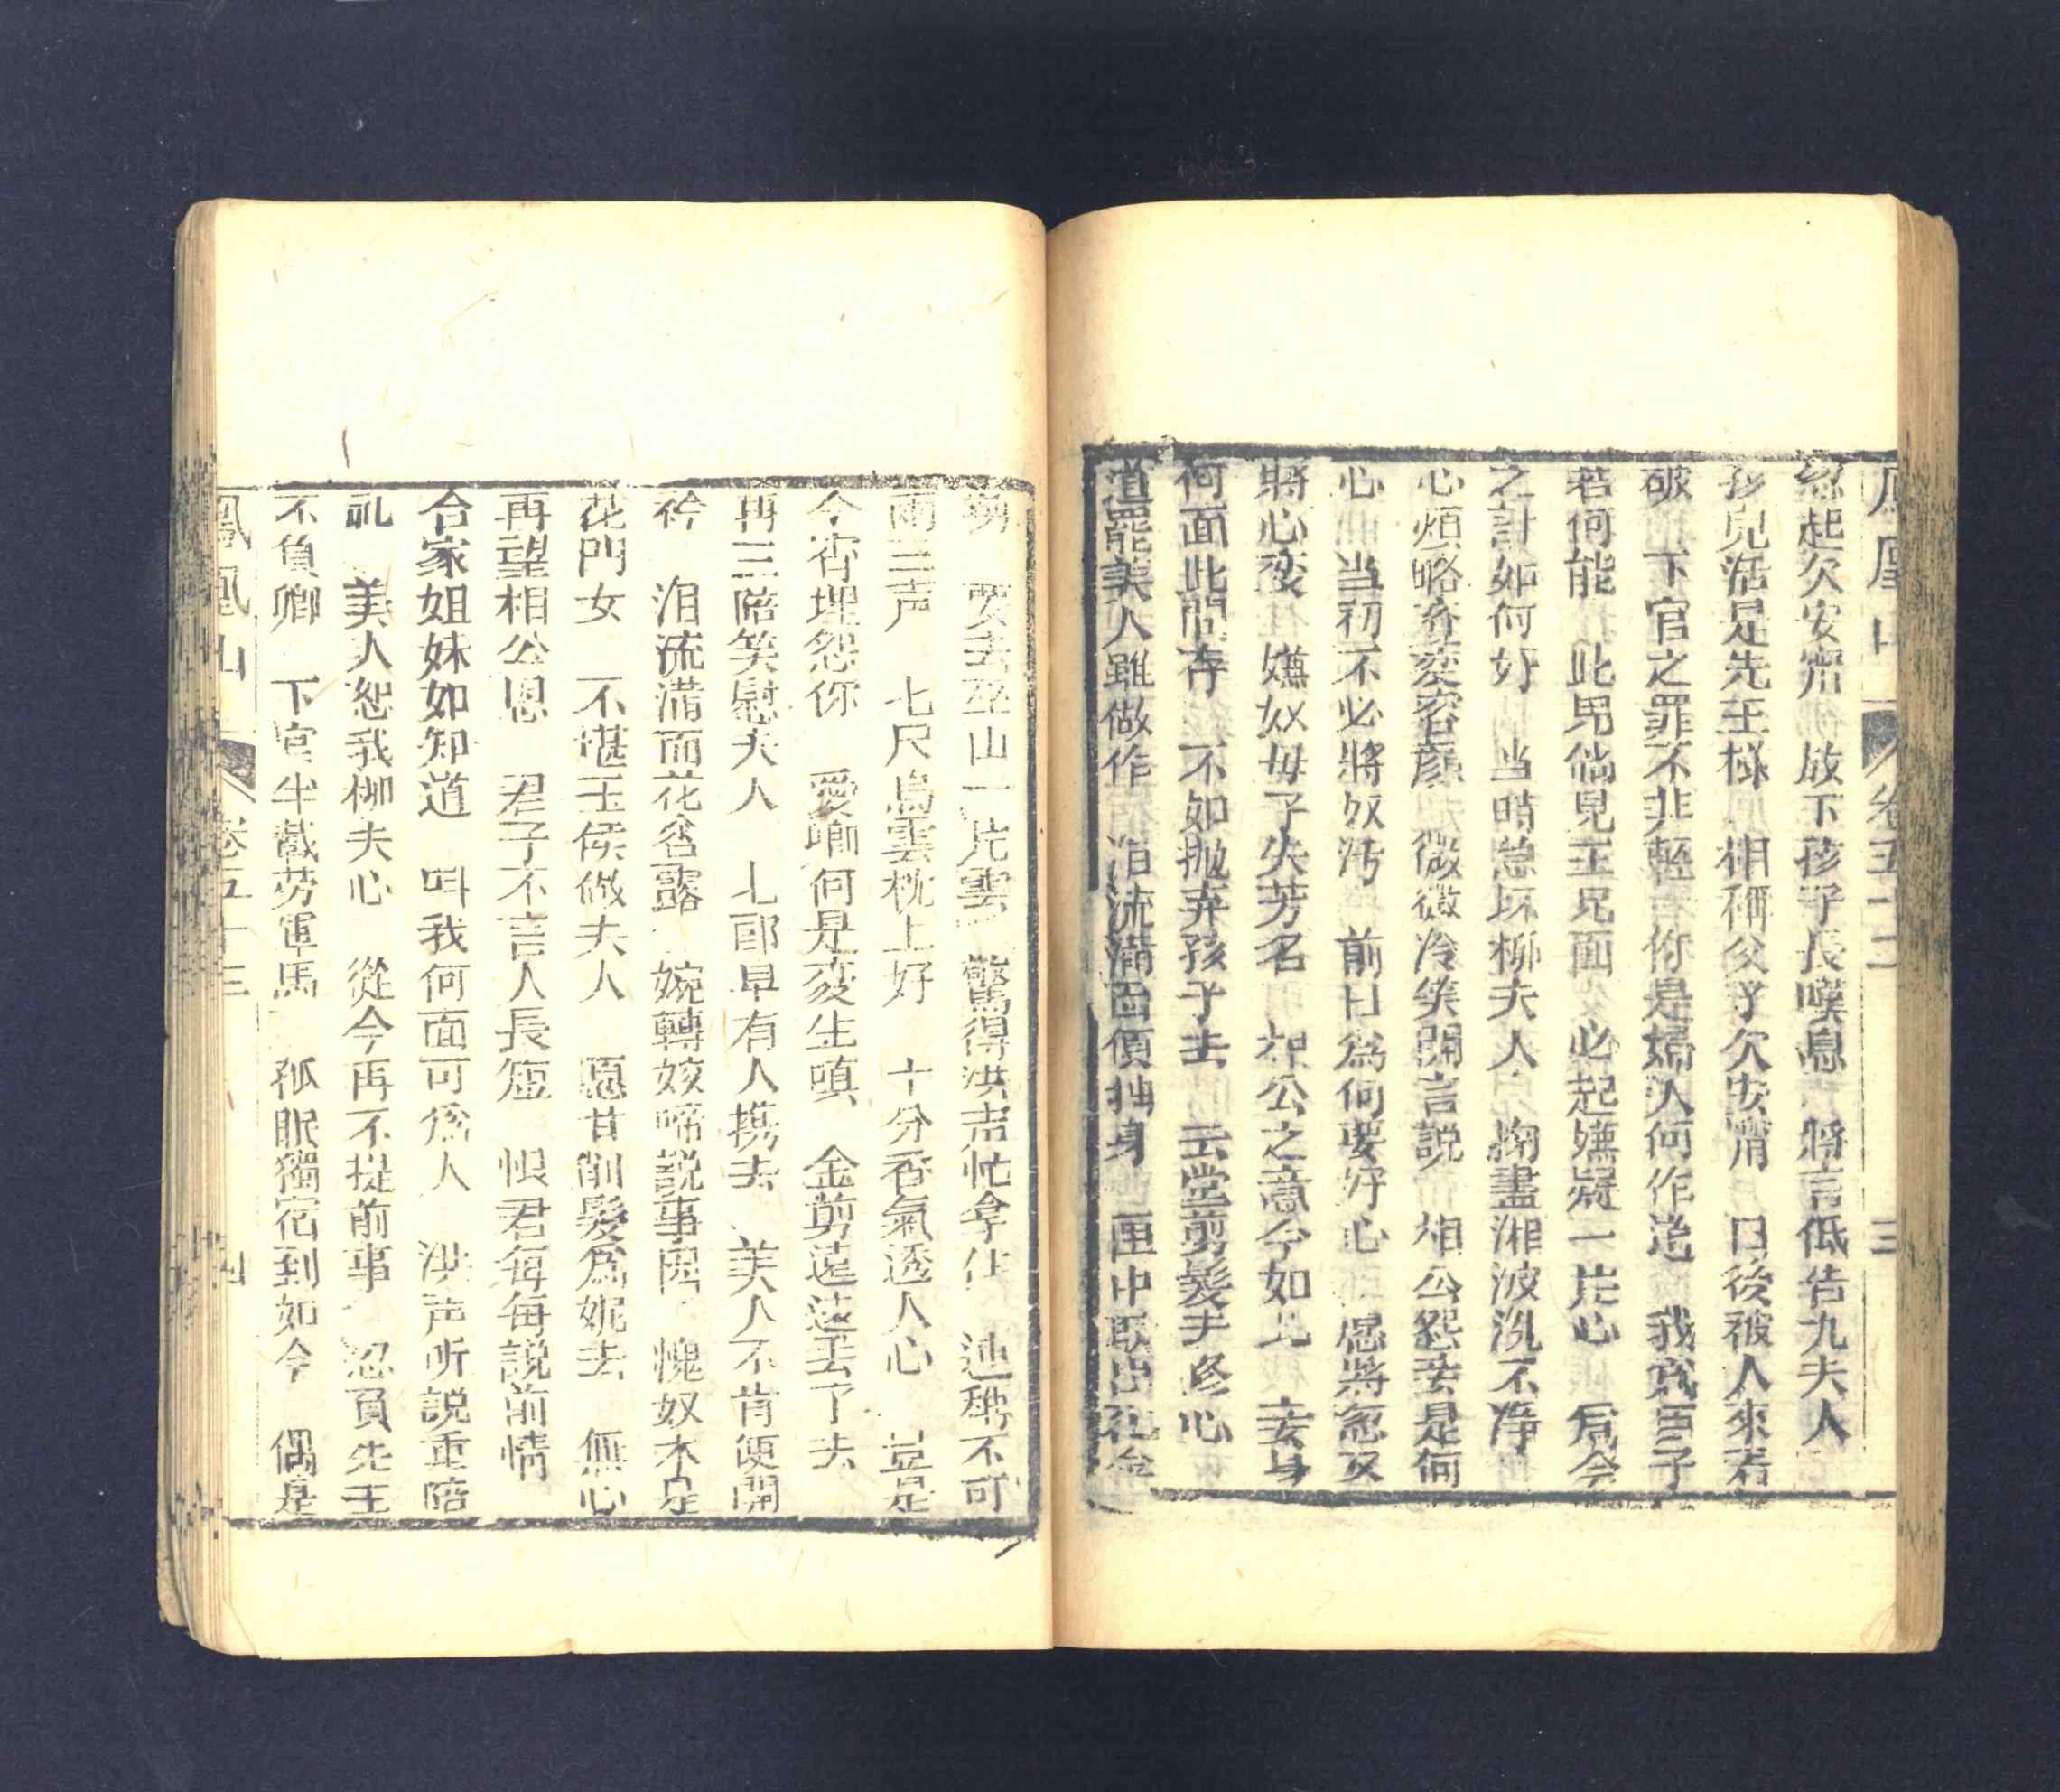 鳳凰山 卷五十三 三
忽起欠安甯 放下孩子長嘆息 將言低告九夫人
孩兒活是先王樣 相稱父子欠安甯 日後被人來看
破 下官之罪不非輕 你是婦人何作 我 臣子
若何能 此男倘見王兄面 必起嫌疑一片心 爲今
之計如何好 当時急坏柳夫人 掬盡湘波洗不淨
心煩略 变容顏 微微冷笑開言説 相公怨妾是何
心 当初不必將奴污 前日爲何要好心 忽又
將心变 嫌奴母子失芳名 相公之意今如此 妾身
何面此間存 不如拋弃孩子去 云堂剪髮去修心
道罷美人雖做作 泪流滿面 身 匣中取出
剪 要去巫山一片雲 驚得洪声忙拿住 連稱不可
兩三声 七尺烏雲枕上好 十分香氣透人心 豈是
今宵埋怨你 愛卿何是变生嗔 金剪遠遠丟了去
再三陪笑慰夫人 七郎早有人携去 美人不肯便開
衿 泪流滿面花含露 婉轉嬌啼説事因 愧奴本是
花門女 不堪王侯做夫人 愿甘削髮爲妮去 無心
再望相公恩 君子不言人長短 恨君每每説前情
合家姐妹如知道 叫我何面可爲人 洪声听説重陪
礼 美人恕我柳夫心 從今再不提前事 忍負先王
不負卿 下官半載劳軍馬 孤眠獨宿到如今 偶是
鳳凰山 卷五十三 四